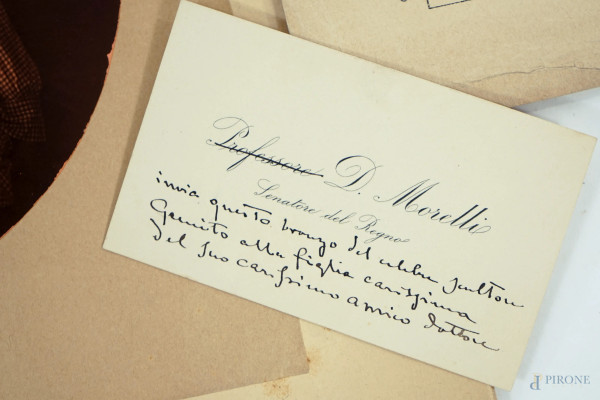 Professore D. Morelli
Senatore del Regno
invia questo bronzo del celebre scultore
Gemito alla figlia carissima
del suo carissimo amico dottore
PIRONE